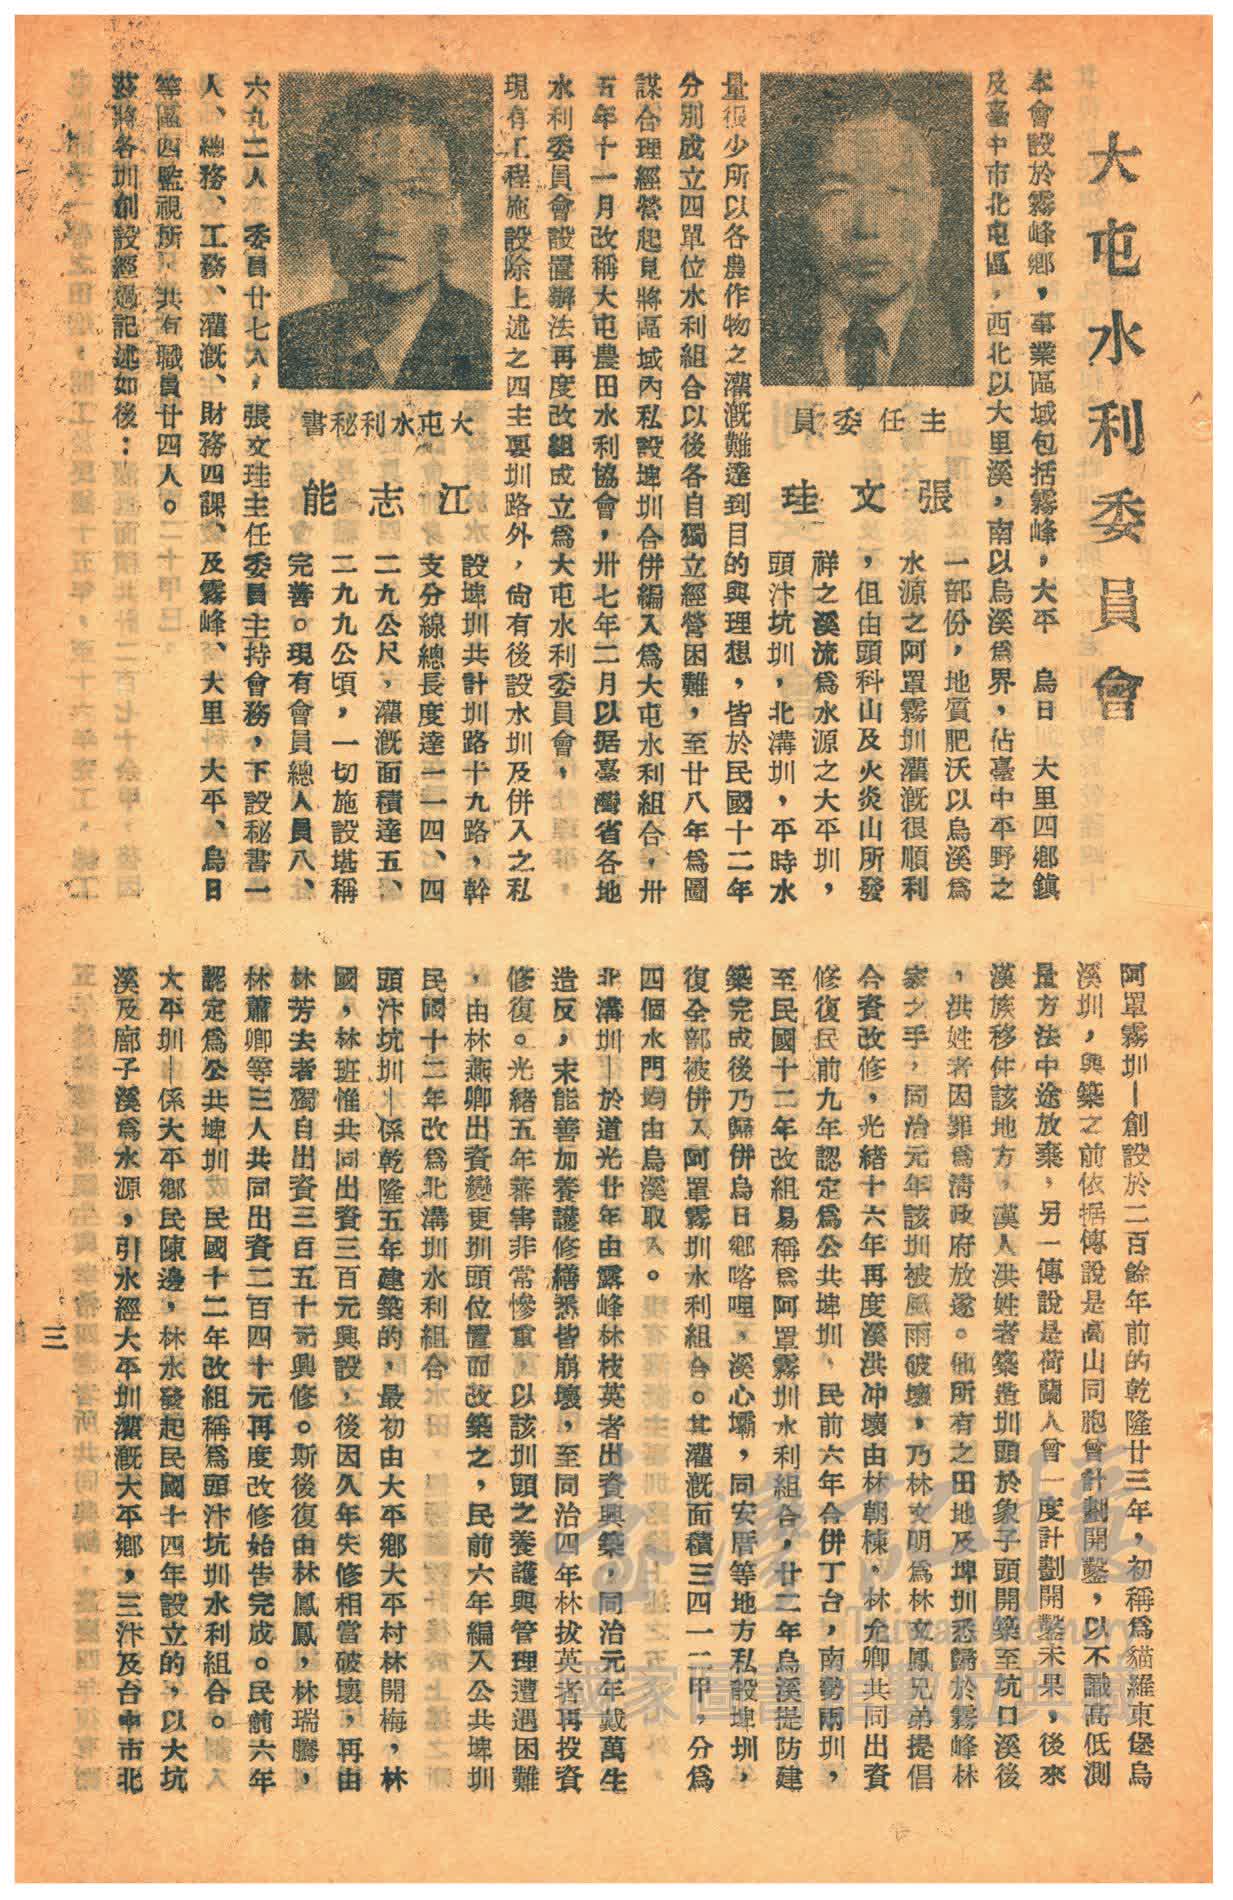 大屯水利委員會
本會設於霧峰鄉，事業區域包括霧峰，大平　烏日　大里四鄉鎮
及臺中市北屯區，西北以大里溪，南以烏溪爲界，佔臺中平野之
一部份，地質肥沃以烏溪爲
水源之阿罩霧圳灌漑很順利
，但由頭科山及火炎山所發
祥之溪流爲水源之大平圳，
頭汴坑圳，北溝圳，平時水
主任委員
張文珪
量很少所以各農作物之灌漑難達到目的與理想，皆於民國十二年
分別成立四單位水利組合以後各自獨立經營困難，至廿八年爲圖
謀合理經營起見將區域內私設埤圳合併編入爲大屯水利組合，卅
五年十一月改稱大屯農田水利協會，卅七年二月以据臺灣省各地
水利委員會設置辦法再度改組成立爲大屯水利委員會，
現有工程施設除上述之四主要圳路外，尙有後設水圳及併入之私
設埤圳共計圳路十九路，幹
支分線總長度達一一四、四
二九公尺，灌漑面積達五、
二九九九公頃，一切施設堪稱
完善。現有會員總人員八、
大屯水利秘書
江志能
六九二人，委員廿七人，張文珪主任委員主持會務，下設秘書一
人、總務、工務、灌漑、財務四課、及霧峰、大里　大平、烏日
等區四監視所，共有職員廿四人。
茲將各圳創設經過記述如後：
阿罩霧圳—創設於二百餘年前的乾隆廿三年，初稱爲貓羅東堡烏
溪圳，興築之前依据傳說是高山同胞會計劃開鑿，以不識高低測
量方法中途放棄，另一傳說是荷蘭人會一度計劃開鑿未果，後來
漢族移住該地方，漢人洪姓者築造圳頭於象子頭開築至坑口溪後
，洪姓者因罪爲淸政府放遂。他所有之田地及埤圳悉歸於霧峰林
家之手，同治元年該圳被風雨破壞，乃林文明爲林文鳳兄弟提倡
合資改修，光緒十六年再度溪洪冲壞由林朝棟，林允卿共同出資
修復民前九年認定爲公共埤圳，民前六年合併丁台，南勢兩圳，
至民國十二年改組易稱爲阿罩霧圳水利組合，廿二年烏溪提防建
築完成後乃歸併烏日鄉喀哩，溪心壩，同安厝等地方私設埤圳，
復全部被併入阿罩霧圳水利組合。其灌漑面積三四一二甲，分爲
四個水門均由烏溪取入。
北溝圳—於道光廿年由霧峰林枝英者出資興築，同治元年戴萬生
造反，末能善加養護修繕悉皆崩壞，至同治四年林拔英者再投資
修復。光緒五年蕃害非常慘重，以該圳頭之養護與管理遭遇困難
，由林燕卿出資變更圳頭位置而改築之，民前六年編入公共埤圳
民國十二年改爲北溝圳水利組合
頭汴坑圳—係乾隆五年建築的，最初由大平鄉大平村林開梅，林
國，林班惟共同出資三百元興設，後因久年失修相當破壞，再由
林芳去者獨自出資三百五十元興修。斯後復由林鳳鳳，林瑞騰，
林蕭卿等三人共同出資二百四十元再度改修始告完成。民前六年
認定爲公共埤圳民國十二年改組稱爲頭汴坑圳水利組合。
大平圳—係大平鄉民陳邊，林水發起民國十四年設立的，以大坑
溪及廍子溪爲水源，引水經大平圳灌漑大平鄉，三汴及台中市北
三
臺灣記憶
Taiwan Memory
國家圖書館數位典藏